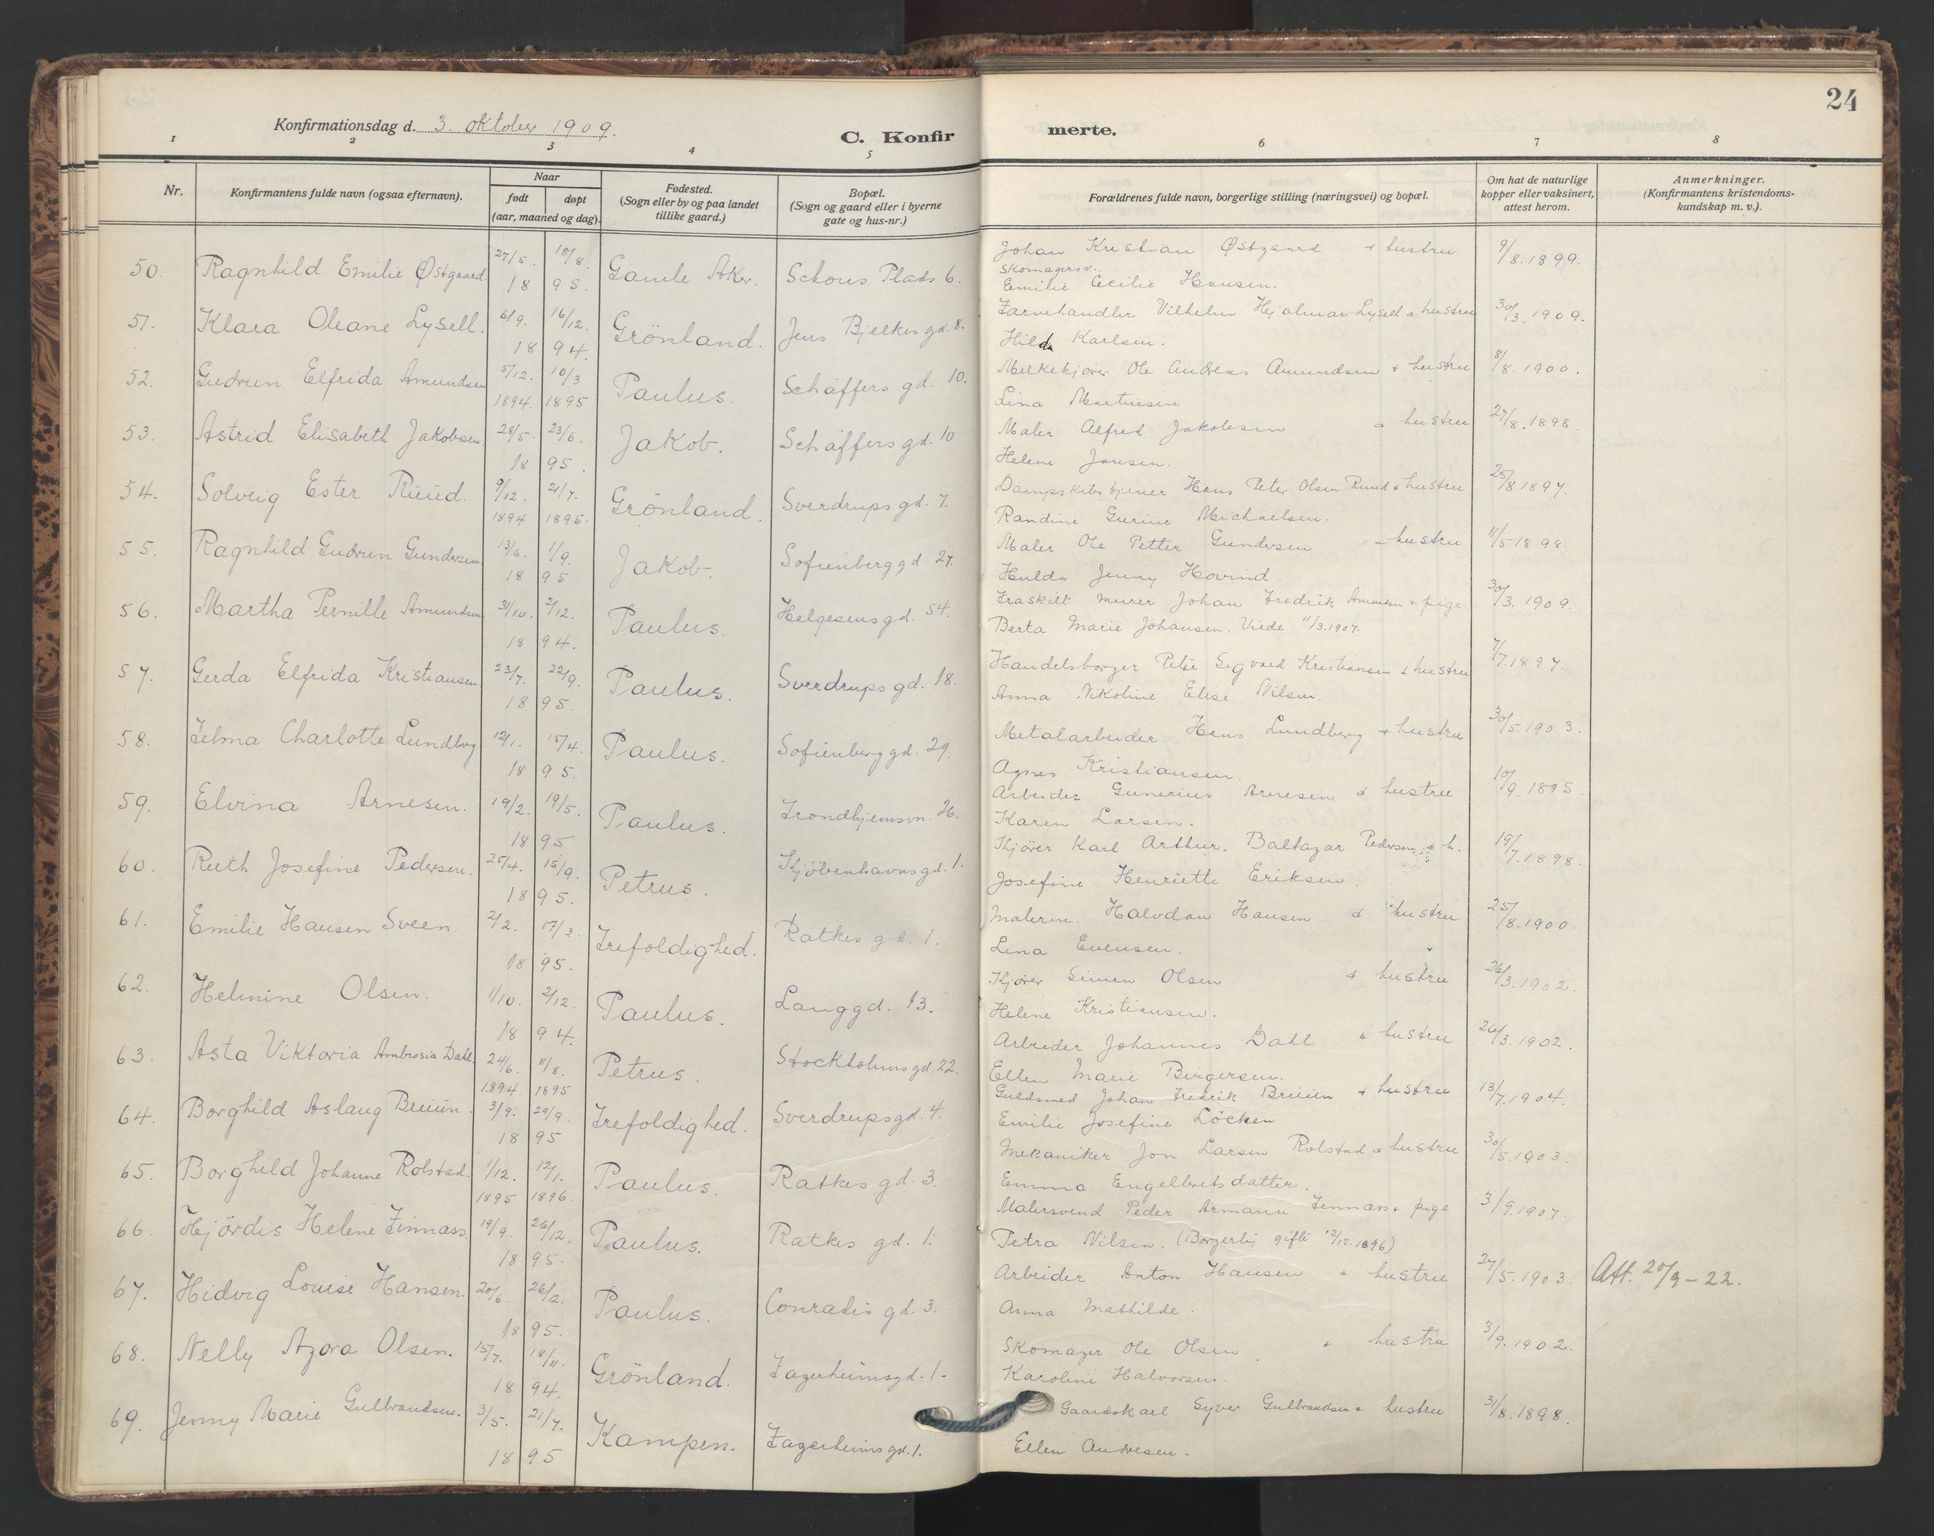 24
Konfirmationsdag d. 3. oktober 1909.
C. Konfirmerte.
1 2 3 4 5 6 7 8
Nr.
Konfirmantens fulde navn (ogsaa efternavn).
Naar
født døpt
(aar, maaned og dag).
Fødested.
(Sogn eller by og paa landet
tillike gaard.)
Bopæl.
(Sogn og gaard eller i byerne
gate og hus-nr.)
Forældrenes fulde navn, borgerlige stilling (næringsvei) og bopæl.
Om hat de naturlige
kopper eller vaksinert,
attest herom.
Anmerkninger.
(Konfirmantens kristendoms-
kundskap m. v.).
50. Ragnhild Emilie Østgaard 27/5. 18/8. 1895. Gamle Aker. Schous Plads 6. Johan Kristian Østgaard & hustru 9/8.1899.
Skomagersv.
Emilie Cecilie Hansen.
51. Klara Oleane Lysell. 6/9. 16/12. 1894. Grönland. Jens Bjelkes gd. 8. Farvehandler Vilhelm Hjalmar Lysell & hustru 30/3.1909.
Hilda Karlsen.
52. Gudrun Elfrida Amundsen 5/12. 1894. 10/3 1895 Paulus. Schäffers gd. 10. Melkekjører Ole Andreas Amundsen & hustru 8/8.1900.
Lina Martinsen
53. Astrid Elisabeth Jakobsen 28/5. 23/6. 1895. Jakob. Schäffers gd. 10 Maler Alfred Jakobsen & hustru 27/8.1898.
Helene Jansen.
54. Solveig Ester Ruud. 9/12. 1894 21/7. 1895. Grönland. Sverdrups gd. 7. Dampskibstjener Hans Peter Olsen Ruud & hustru 25/8.1897.
Randine Gurine Michaelsen.
55. Ragnhild Gudrun Gundersen 13/6. 1/9. 1895 Jakob. Sofienberg gd. 27. Maler Ole Petter Gundersen & hustru 11/5.1898.
Hulda Jenny Hovind.
56. Martha Pernille Amundsen 31/10. 2/12. 1894. Paulus. Helgesens gd. 54. Fraskilt murer Johan Fredrik Amundsen & pige 30/3.1909.
Berta Marie Johansen. Viede 11/3.1907.
57. Gerda Elfrida Kristiansen 23/7. 22/9. 1895. Paulus. Sverdrups gd. 18. Handelsborger Peter Sigvard Kristiansen & hustru 7/7.1897.
Anna Nikoline Elise Nilsen.
58. Selma Charlotte Lundberg 12/1. 15/4. 1895. Paulus. Sofienberg gd. 29. Metalarbeider Hans Lundberg & hustru 30/5.1903.
Agnes Kristiansen.
59. Elvina Arnesen. 19/2. 19/5. 1895 Paulus. Trondhjemsvn. 26. Arbeider Gunerius Arnesen & hustru 10/9.1895.
Karen Larsen.
60. Ruth Josefine Pedersen. 25/4. 15/9. 1895. Petrus. Kjøbenhavns gd. 1. Kjører Karl Arthur Baltazar Pedersen & h. 19/7.1898.
Josefine Henriette Eriksen.
61. Emilie Hansen Sveen. 2/2. 17/3. 1895. Trefoldighed. Ratkes gd. 1. Malerm. Halvdan Hansen & hustru 25/8.1900.
Lina Evensen.
62. Helmine Olsen. 1/10. 2/12. 1894. Paulus. Langgd. 13. Kjører Simen Olsen & hustru 26/3.1902.
Helene Kristiansen.
63. Asta Viktoria Ambrosia Dahl 24/6. 1894. 11/8. 1895 Petrus. Stockholms gd. 22. Arbeider Johannes Dahl & hustru 26/3.1902.
Ellen Marie Birgersen.
64. Borghild Aslaug Bruün. 3/9. 29/9. 1895 Trefoldighed. Sverdrups gd. 4. Guldsmed Johan Fredrik Bruün & hustru 13/7.1904.
Emilie Josefine Löcken
65. Borghild Johanne Rolstad. 1/12. 1895 12/1. 1896. Paulus. Ratkes gd. 3. Mekaniker Jon Larsen Rolstad & hustru 30/5.1903.
Emma Engelbretsdatter.
66. Hjördis Helene Finnass. 19/9. 26/12. 1895. Paulus. Ratkes gd. 1. Malersvend Peder Armann Finnass & pige 3/9.1907.
Petra Nilsen. (Borgerlig gifte 12/12.1896)
67. Hidvig Louise Hansen. 20/6. 26/12. 1895. Paulus. Conradis gd. 3. Arbeider Anton Hansen & hustru 27/5.1903. Att. 20/9-22.
Anna Mathilde.
68. Nelly Azora Olsen. 15/7. 18/11. 1894. Grönland. Fagerheimsgd. 1. Skomager Ole Olsen & hustru 3/9.1902.
Karoline Halvorsen.
69. Jenny Marie Gulbrandsen. 3/5. 21/7. 1895 Kampen. Fagerheims gd. 1. Gaardskarl Syver Gulbrandsen & hustru 31/8.1898.
Ellen Andresen.